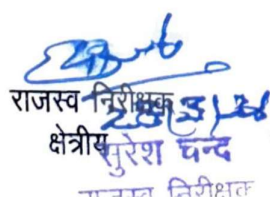 राजस्व निरीक्षक
क्षेत्रीय
सुरेश चन्द
राजस्व निरीक्षक